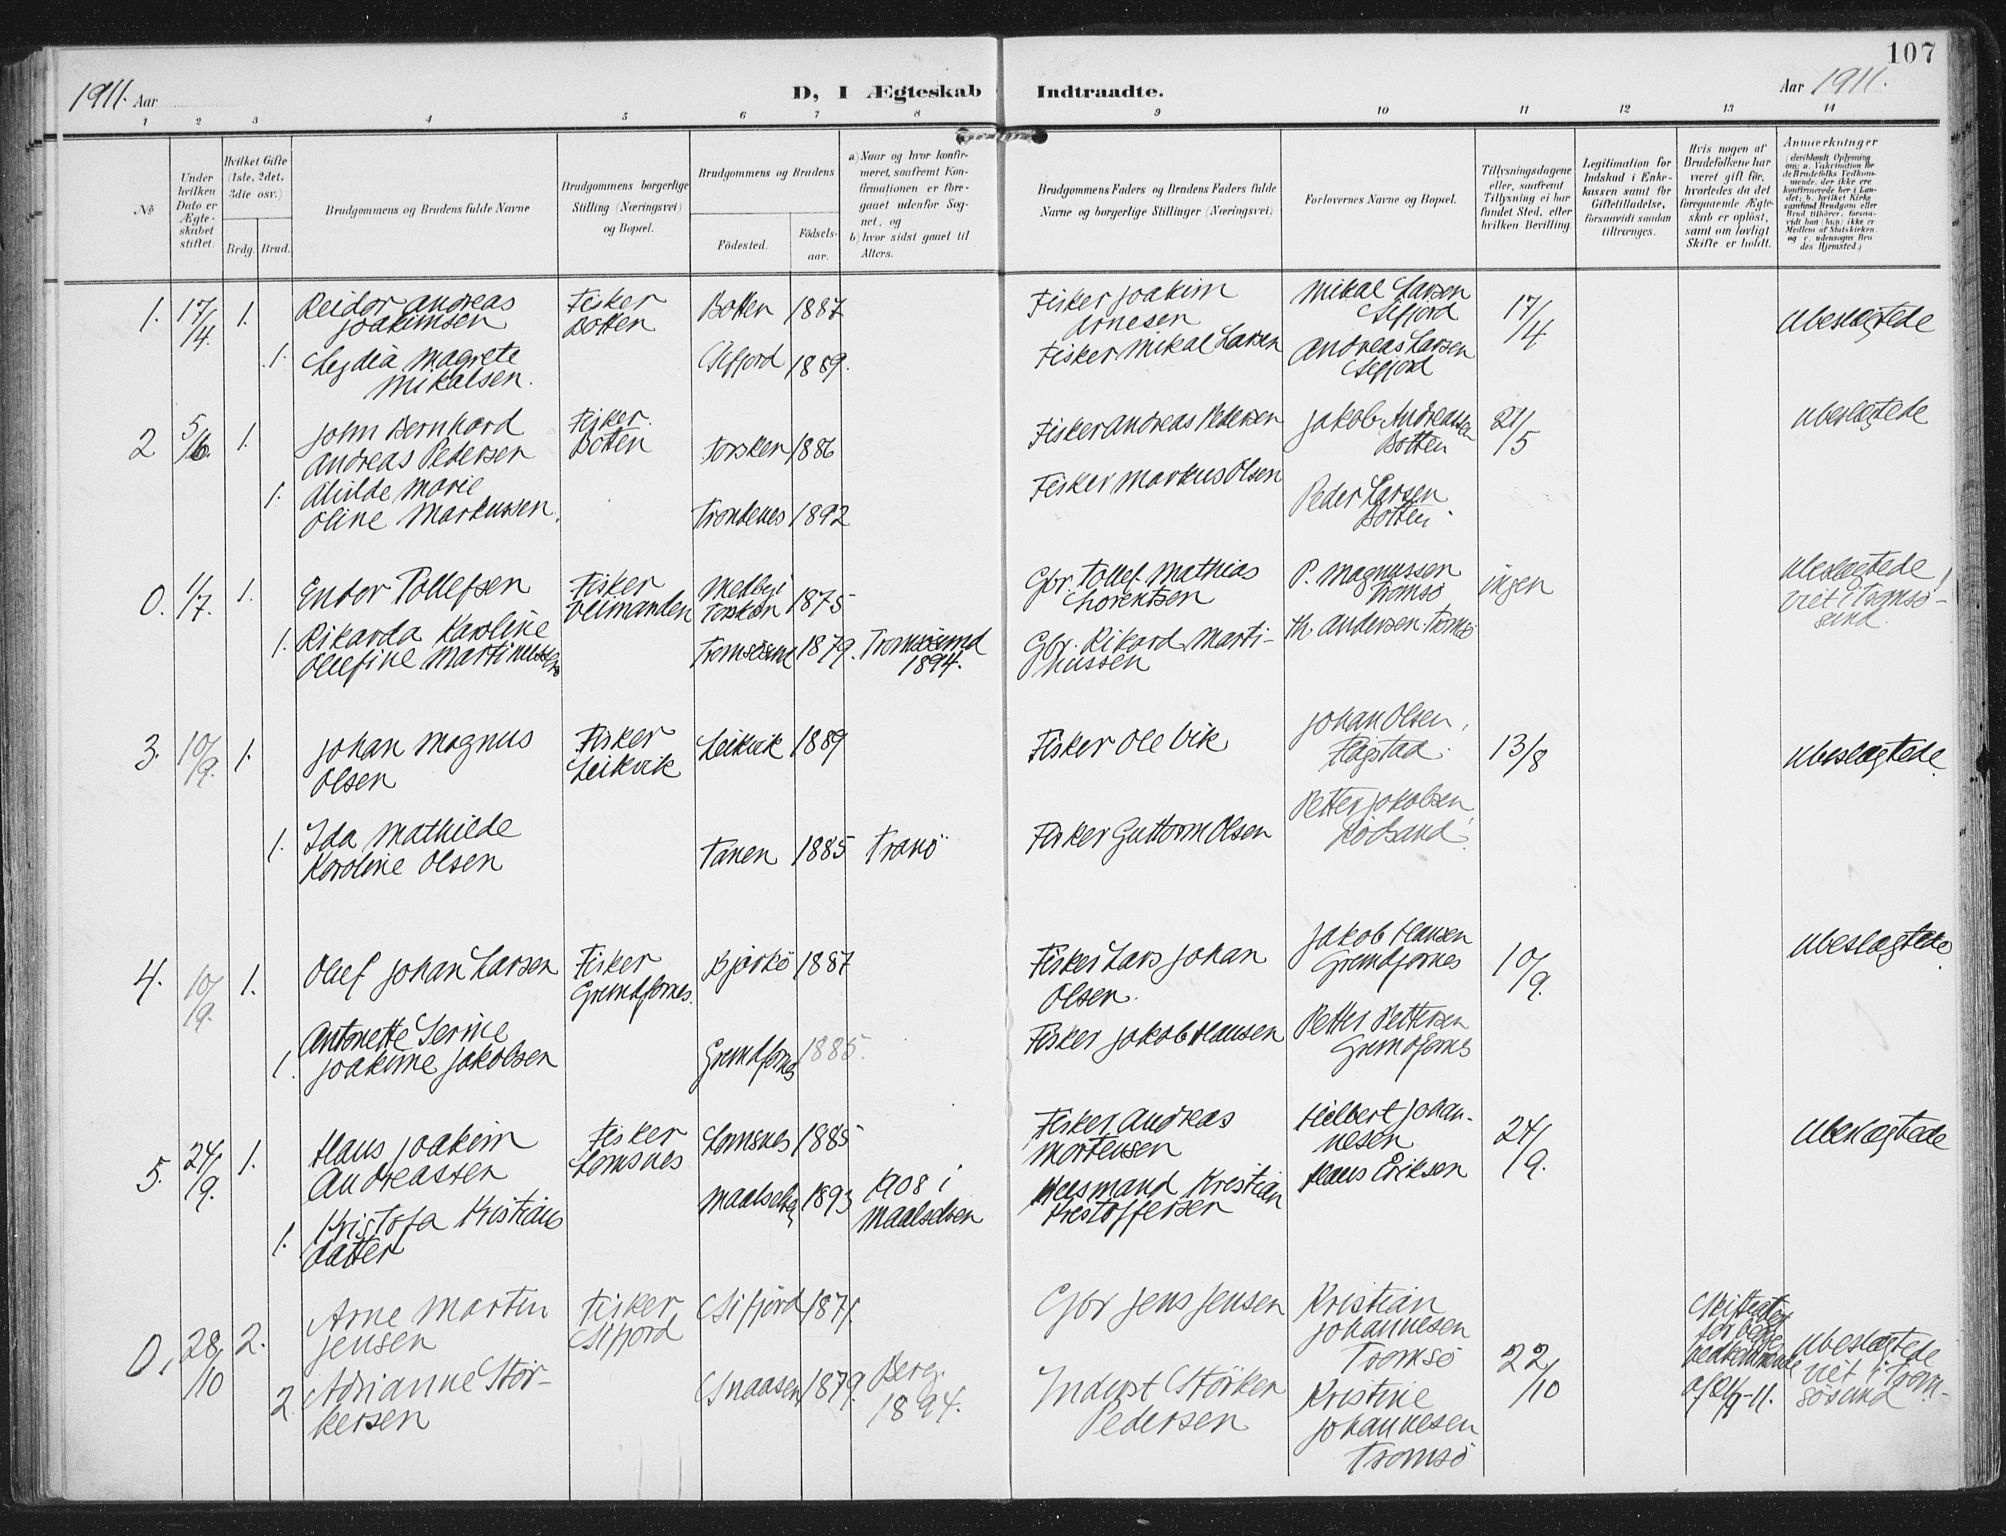 107
1911. Aar
D, I Ægteskab Indtraadte.
Aar 1911.
1 2 3 4 5 6 7 8 9 10 11 12 13 14
No
Under
hvilken
Dato er
Ægte-
skabet
stiftet.
Hvilket Gifte
(1ste, 2det,
3die osv.)
Brdg. Brud.
Brudgommens og Brudens fulde Navne
Brudgommens borgerlige
Stilling (Næringsvei)
og Bopæl.
Brudgommens og Brudens
Fødested.
Fødsels-
aar.
a) Naar og hvor konfir-
meret, saafremt Kon-
firmationen er fore-
gaaet udenfor Sog-
net, og
b) hvor sidst gaaet til
Alters.
Brudgommens Faders og Brudens Faders fulde
Navne og borgerlige Stillinger (Næringsvei)
Forlovernes Navne og Bopæl.
Tillysningsdagene
eller, saafremt
Tillysning ei har
fundet Sted, efter
hvilken Bevilling.
Legitimation for
Indskud i Enke-
kassen samt for
Giftetilladelse,
forsaavidt saadan
tiltrænges.
Hvis nogen af
Brudefolkene har
været gift før,
hvorledes da det
foregaaende Ægte-
skab er opløst,
samt om lovligt
Skifte er holdt.
Anmærkninger
(deriblandt Oplysning
om: a. Vakcination for
de Brudefolks Vedkom-
mende, der ikke ere
konfirmerede her i Lan-
det; b. hvilket Kirke-
samfund Brudgom eller
Brud tilhører, forsaa-
vidt han (hun) ikke er
Medlem af Statskirken,
og c. udensogns Bru-
des Hjemsted.)
1. 17/4. 1. Reidar Andreas
Joakimsen
Fisker
Botten
Botten 1887
Fisker Joakim
Arnesen
Mikal Larsen
Sifjord
17/4
Ubeslægtede
1. Lydia Magrete
Mikalsen.
Sifjord 1889.
Fisker Mikal Larsen
Andreas Larsen
Sifjord
2 5/6. 1. John Bernhard
Andreas Pedersen
Fisker.
Botten
Torsken 1886
Fisker Andreas Pedersen
Jakob Andreassen
Botten
21/5
Ubeslægtede
1. Alvilde Marie
Oline Markussen.
Trondenes 1892
Fisker Markus Olsen
Peder Larsen
Botten
0. 1/7. 1. Endor Tollefsen
Fisker
Veimanden
Medby i
Torsken 1875
Gbr. Tollef Mathias
Lorentsen
P. Magnussen
Tromsø
ingen
Ubeslægtede!
Viet i Tromsø-
sund.
1. Rikarda Karoline
Olefine Martinussen
Tromsøsund 1879. Tromsøsund
1894.
Gbr. Rikard Marti-
nussen
Th. Andersen Tromsø
3. 10/9. 1. Johan Magnus
Olsen
Fisker
Leikvik
Leikvik 1889
Fisker Ole Vik
Johan Olsen,
Flagstad.
13/8
Ubeslægtede.
1. Ida Mathilde
Karoline Olsen
Tanen 1885 Tranö
Fisker Guttorm Olsen
Petter Jakobsen,
Rödsand.
4. 10/9. 1. Oluf Johan Larsen
Fisker
Grundfornes.
Bjarkö 1887
Fisker Lars Johan
Olsen.
Jakob Hansen
Grundfornes
10/9.
Ubeslægtede.
1. Antonette Serine
Joakime Jakobsen
Grundfornes 1885.
Fisker Jakob Hansen
Petter Pettersen
Grundfornes
5. 24/9. 1. Hans Joakim
Andreassen
Fisker
Lomsnes
Lomsnes 1885
Fisker Andreas
Mortensen
Hilbert Johan-
nesen
24/9.
Ubeslægtede
1. Kristofa Kristians
datter
Maalselv 1893 1908 i
Maalselven
Kristian
Kristoffersen
Hans Eriksen
0. 28/10 2. Arne Martin
Jensen
Fisker
Sifjord
Sifjord 1871.
Gbr Jens Jensen
Kristian
Johannesen
Tromsö
22/10
for begge
vedkommende
Ubeslægtede
viet i Trom-
sösund
2. Adrianne Stör-
kersen
Snaasen 1879. Berg.
1894.
Inderst Störker
Pedersen
Kristine
Johannesen
Tromsö